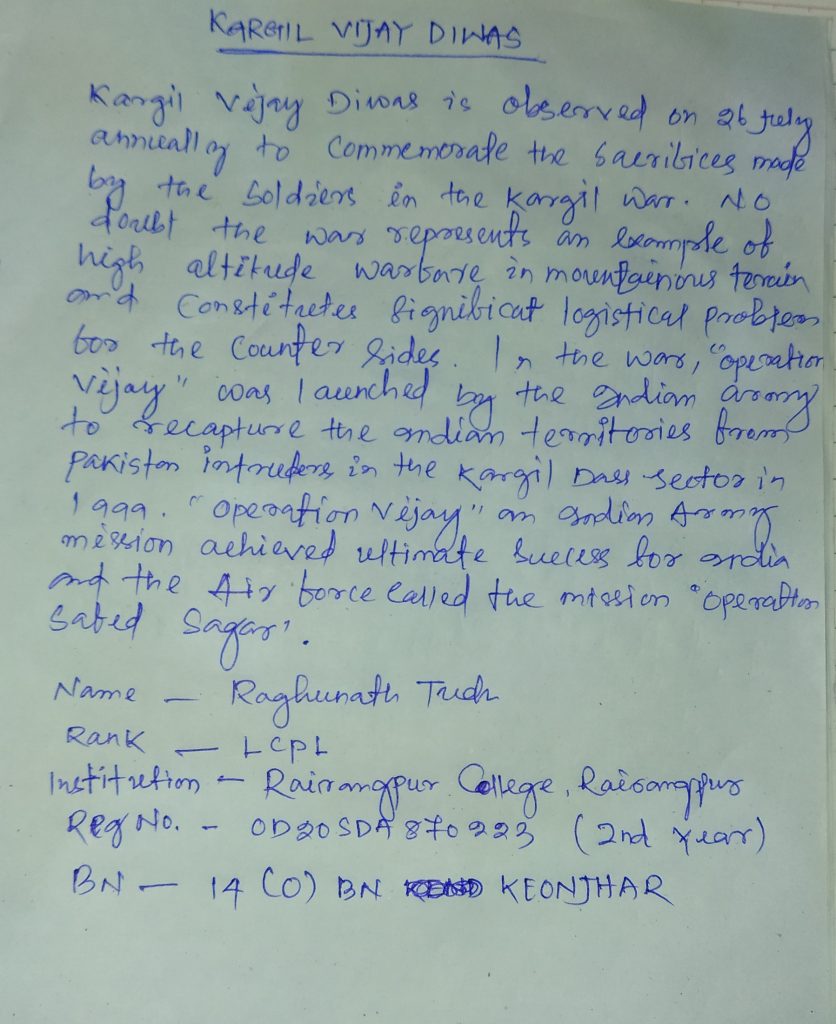 KARGIL VIJAY DIWAS
Kargil Vijay Diwas is observed on 26 July
annually to commemorate the sacrifices made
by the soldiers in the Kargil war. No
doubt the war represents an example of
high altitude warfare in mountainious terrain
and constitutes significat logistical problem
for the counter sides. In the war, "operation
Vijay" was launched by the Indian army
to recapture the indian territories from
Pakistan intruders in the Kargil Dass sector in
1999. "Operation Vijay" an Indian Army
mission achieved ultimate success for India
and the Air force called the mission "operation
Safed Sagar".
Name — Raghunath Tudu
Rank — LCPL
Institution — Rairangpur College, Rairangpur
Reg No. - OD20SDA870223 (2nd Year)
BN — 14 (O) BN KEONJHAR